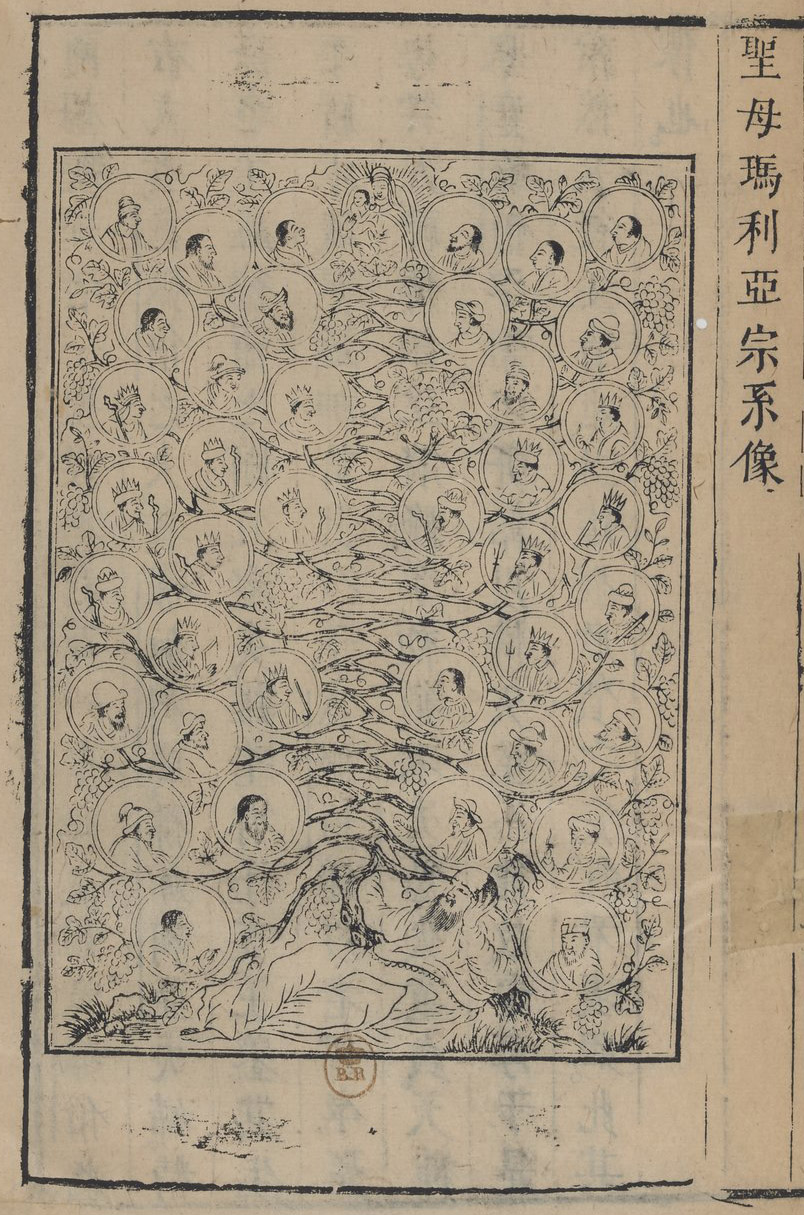 聖母瑪利亞宗系像
B.R